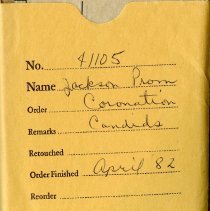 No. 41105
Name Jackson Prom
Order Coronation
Remarks Candids
Retouched
Order Finished April 82
Reorder